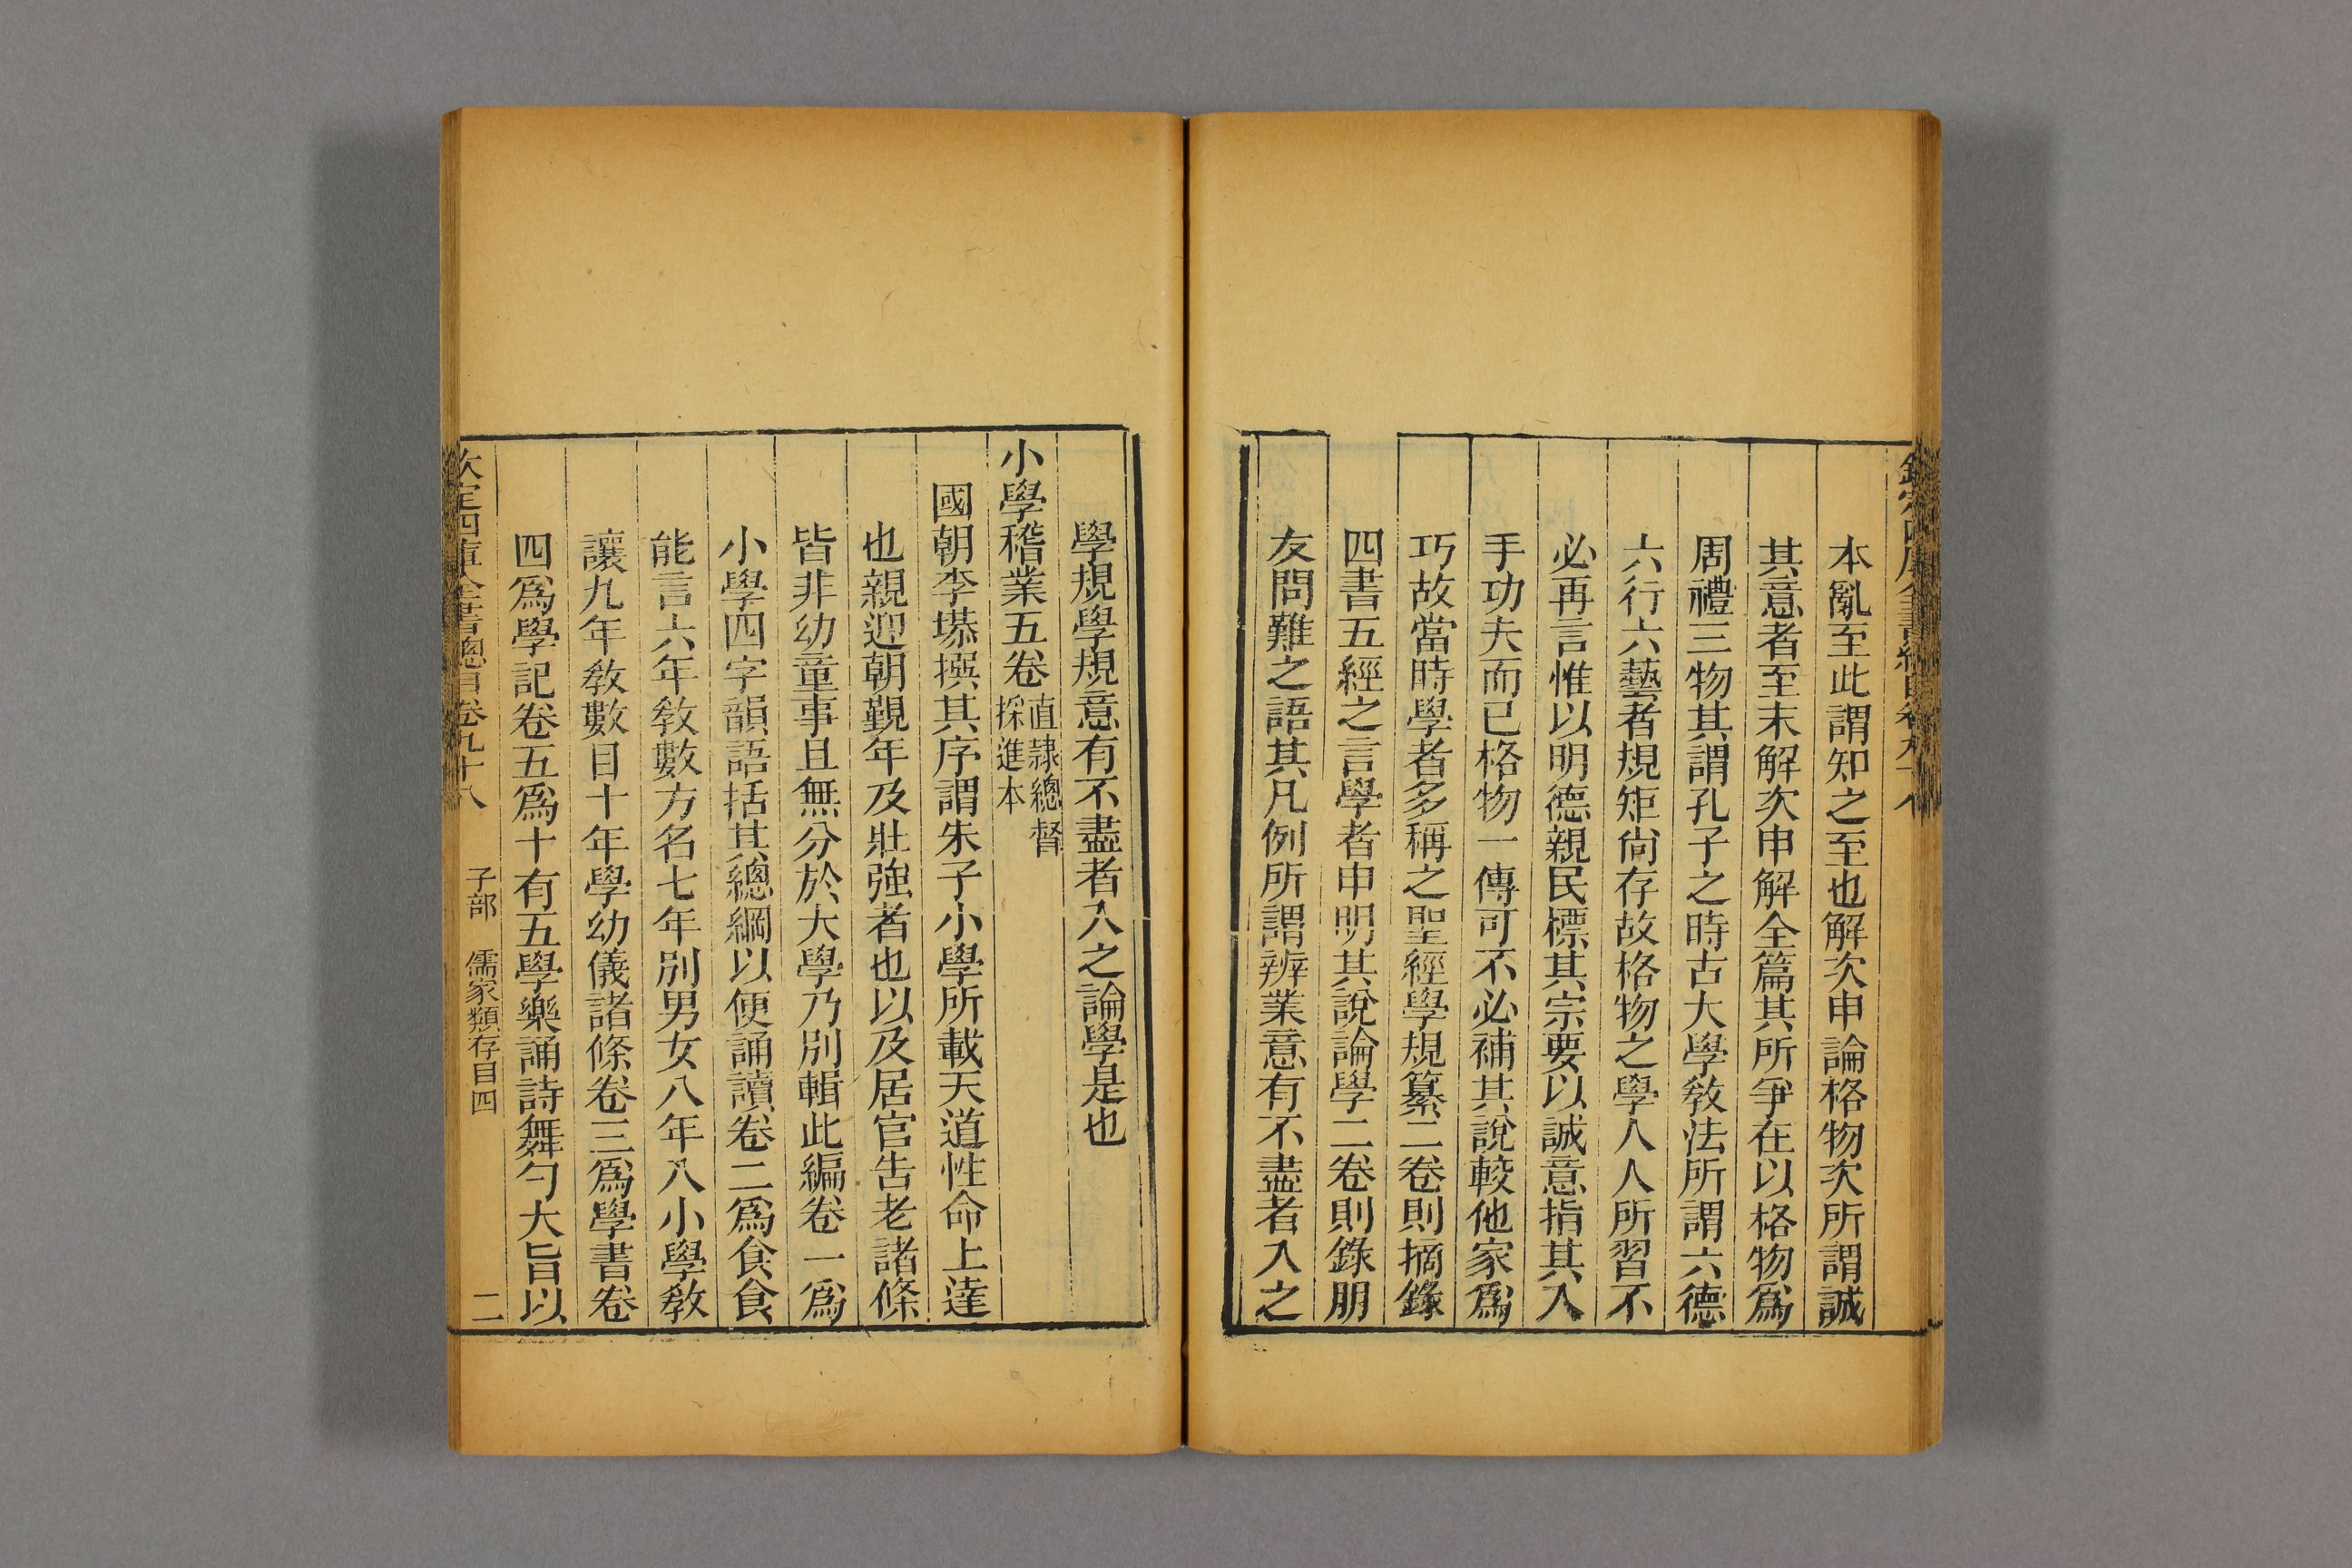 本亂至此謂知之至也解次申論格物次所謂誠
其意者至末解次申解全篇其所爭在以格物爲
周禮三物其謂孔子之時古大學敎法所謂六德
六行六藝者規矩尙存故格物之學人人所習不
必再言惟以明德親民標其宗要以誠意指其入
手功夫而已格物一傳可不必補其說較他家爲
巧故當時學者多稱之聖經學規纂二卷則摘錄
四書五經之言學者申明其說論學二卷則錄朋
友問難之語其凡例所謂辨業意有不盡者入之
學規學規意有不盡者入之論學是也
小學稽業五卷
直隷總督
採進本
國朝李塨撰其序謂朱子小學所載天道性命上達
也親迎朝覲年及壯強者也以及居官告老諸條
皆非幼童事且無分於大學乃別輯此編卷一爲
小學四字韻語括其總綱以便誦讀卷二爲食食
能言六年敎數方名七年別男女八年入小學敎
讓九年敎數目十年學幼儀諸條卷三爲學書卷
四爲學記卷五爲十有五學樂誦詩舞勺大旨以
欽定四庫全書總目卷九十八 子部 儒家類存目四 二